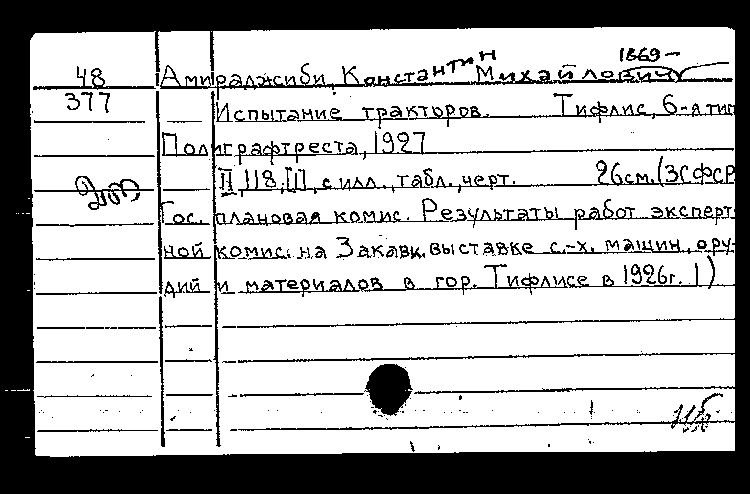 1869-
48 Амираджиби, Константин Михайлович
377 Испытание тракторов. Тифлис, 6-я тип
Полиграфтреста, 1927
II, 118, II, с илл., табл., черт. 26см. (ЗСФСР
Гос. плановая комис. Результаты работ эксперт-
ной комис. на Закавк. выставке с.-х. машин, ору-
дий и материалов в гор. Тифлисе в 1926г. 1)